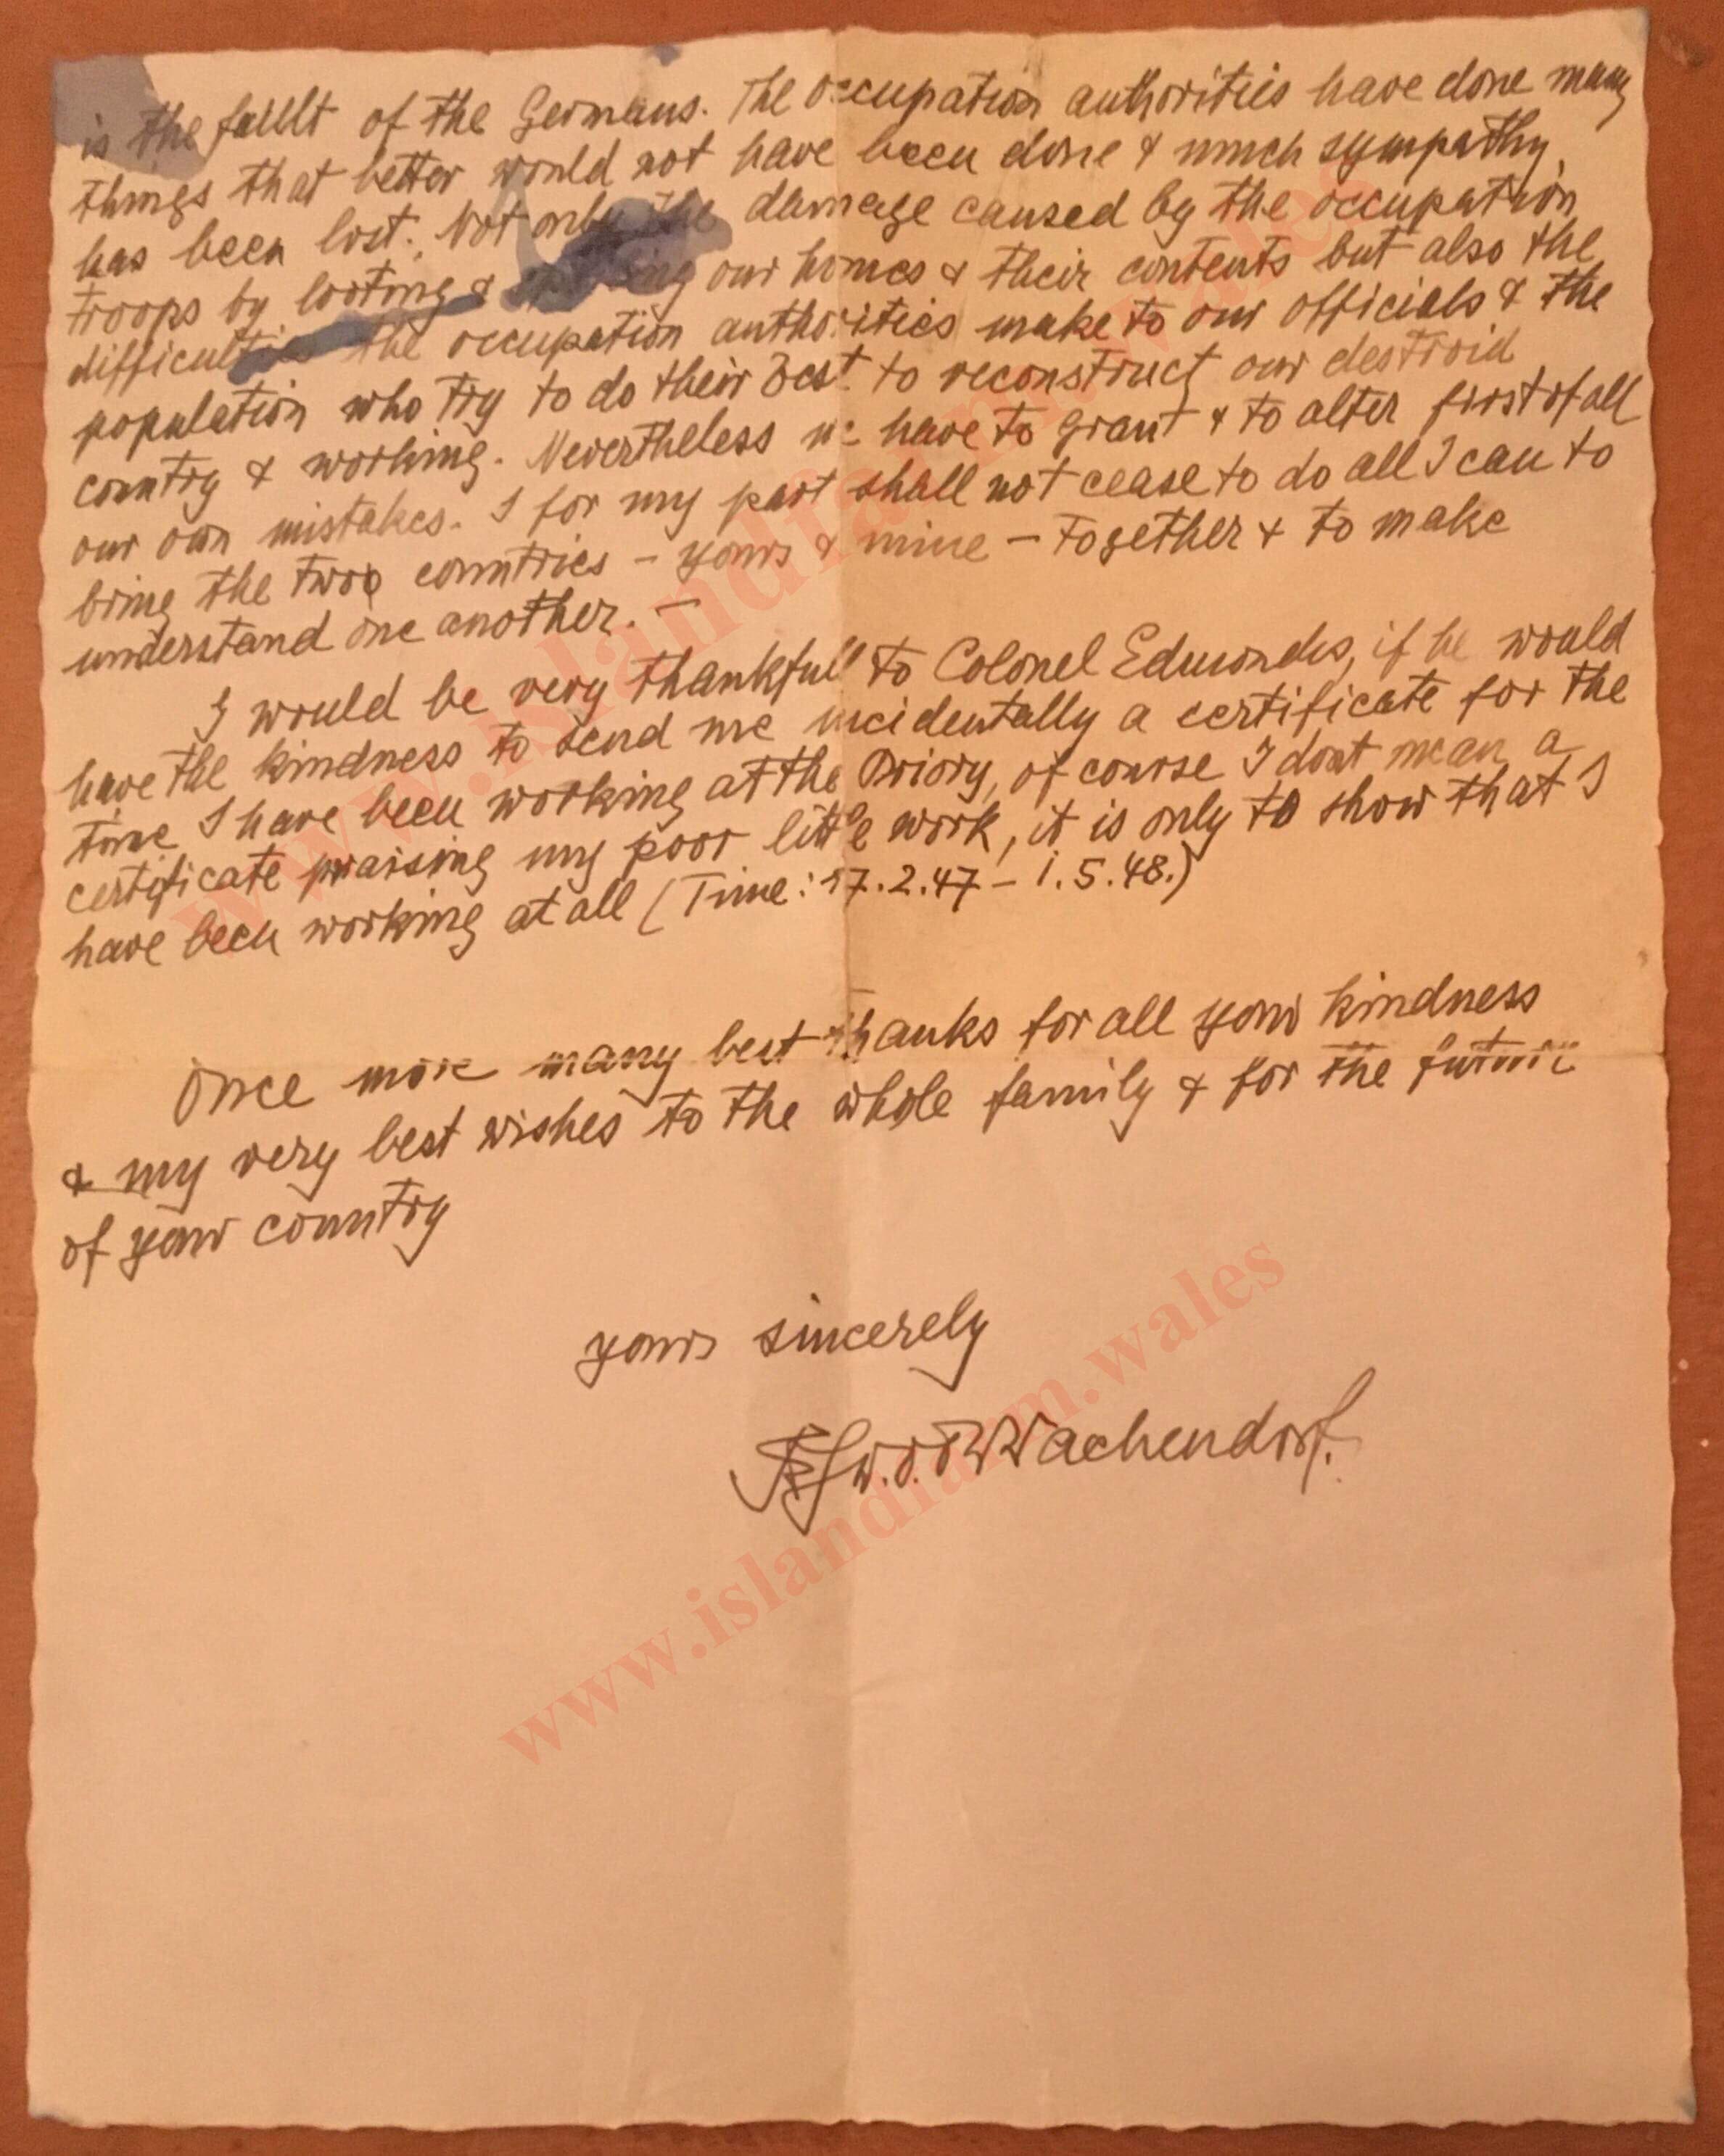 is the faullt of the Germans. The occupation authorities have done many
things that better would not have been done & much sympathy
has been lost. Not only the damage caused by the occupation
troops by looting & our homes & their contents but also the
difficulties the occupation authorities make to our officials & the
population who try to do their best to reconstruct our destroid
country & working. Nevertheless we have to grant & to alter first of all
our own mistakes. I for my part shall not cease to do all I can to
bring the two countries – yours & mine – together & to make
understand one another. –
I would be very thankfull to Colonel Edmonds, if he would
have the kindness to send me incidentally a certificate for the
time I have been working at the Priory, of course I dont mean a
certificate praising my poor little work, it is only to show that I
have been working at all (Time: 17.2.47 – 1.5.48.)
Once more many best thanks for all your kindness
& my very best wishes to the whole family & for the future
of your country
yours sincerely
Wachendorf.
www.islandfarm.wales
www.islandfarm.wales